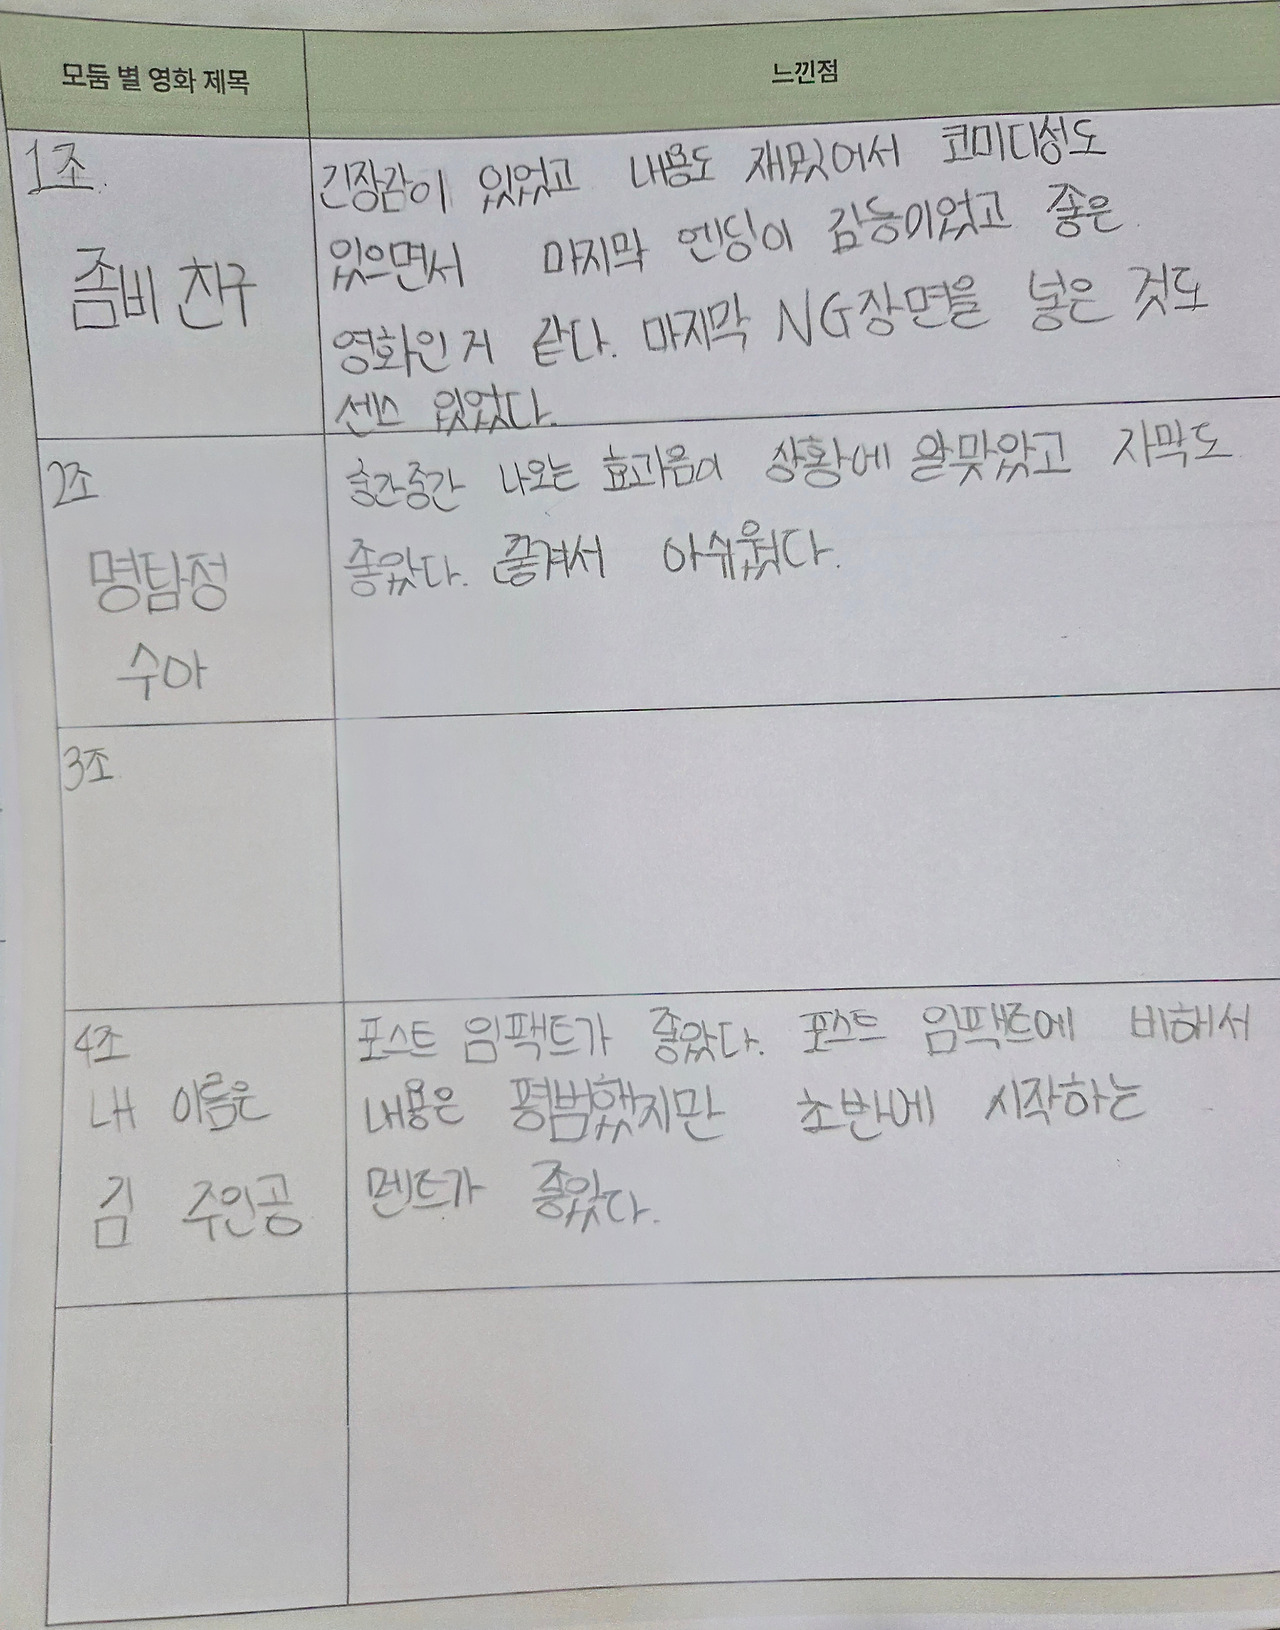 모둠 별 영화 제목
느낀점
1조
좀비 친구
긴장감이 있었고 내용도 재밌어서 코미디성도
있으면서 마지막 엔딩이 감동이었고 좋은
영화인 거 같다. 마지막 NG장면을 넣은 것도
센스 있었다.
2조
명탐정
수아
중간중간 나오는 효과음이 상황에 알맞았고 자막도
좋았다. 끊겨서 아쉬웠다.
3조
4조
내 이름은
김 주인공
포스트 임팩트가 좋았다. 포스트 임팩트에 비해서
내용은 평범했지만 초반에 시작하는
멘트가 좋았다.